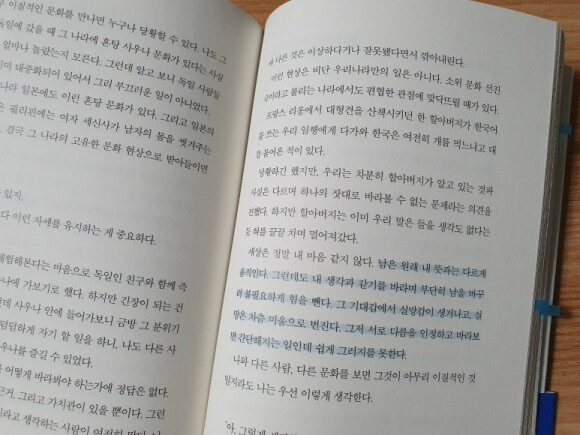 이질적인 문화를 만나면 누구나 당황할 수 있다. 나도 그
독일에 갔을 때 그 나라에 혼탕 사우나 문화가 있다는 사실
얼마나 놀랐는지 모른다. 그런데 알고 보니 독일 사람들
이미 대중화되어 있어서 그리 부끄러운 일이 아니었다.
나라 일본에도 이런 혼탕 문화가 있다. 그리고 일본의
은 필리핀에는 여자 세신사가 남자의 몸을 씻겨주는
결국 그 나라의 고유한 문화 현상으로 받아들이면
있지.
다 이런 자세를 유지하는 게 중요하다.
체험해본다는 마음으로 독일인 친구와 함께 즉
나에 가보기로 했다. 하지만 긴장이 되는 건
런데 사우나 안에 들어가보니 금방 그 분위기
덤덤하게 자기 할 일을 하니, 나도 다른 사
우나를 즐길 수 있었다.
어떻게 바라봐야 하는가에 정답은 없다.
근거, 그리고 가치관이 있을 뿐이다. 그런
이라고 생각하는 사람이 여전히 많다.
과 다른 것은 이상하다거나 잘못됐다면서 깎아내린다.
이런 현상은 비단 우리나라만의 일은 아니다. 소위 문화 선진
국이라고 불리는 나라에서도 편협한 관점에 맞닥뜨릴 때가 있다.
프랑스 리옹에서 대형견을 산책시키던 한 할아버지가 한국어
를 쓰는 우리 일행에게 다가와 한국은 여전히 개를 먹느냐고 대
뜸 물어온 적이 있다.
당황하긴 했지만, 우리는 차분히 할아버지가 알고 있는 것과
사실은 다르며 하나의 잣대로 바라볼 수 없는 문제라는 의견을
건넸다. 하지만 할아버지는 이미 우리 말은 들을 생각도 없다는
듯 혀를 끌끌 차며 멀어져갔다.
세상은 정말 내 마음 같지 않다. 남은 원래 내 뜻과는 다르게
움직인다. 그런데도 내 생각과 같기를 바라며 무단히 남을 바꾸
려 불필요하게 힘을 뺀다. 그 기대감에서 실망감이 생겨나고, 실
망은 차츰 미움으로 번진다. 그저 서로 다름을 인정하고 바라보
면 간단해지는 일인데 쉽게 그러지를 못한다.
나와 다른 사람, 다른 문화를 보면 그것이 아무리 이질적인 것
일지라도 나는 우선 이렇게 생각한다.
'아, 그렇게